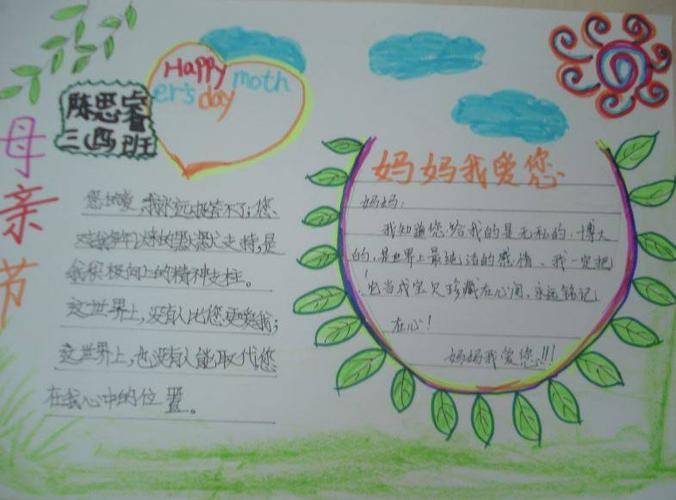 母亲节
Happy
moth
er's day
陈思睿
三(四)班
您的爱,我永远报答不了;您
对我多年以来的默默支持,是
我积极向上的精神支柱。
这世界上,没有人比您更爱我;
这世界上,也没有人能取代您
在我心中的位置。
妈妈我爱您
妈妈:
我知道您给我的是无私的、博大
的,是世界上最纯洁的感情、我一定把
它当成宝贝珍藏在心间,永远铭记
在心!
妈妈我爱您!!!